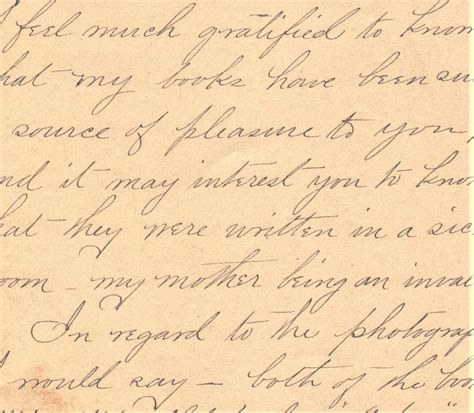 I feel much gratified to know
hat my books have been su
source of pleasure to you,
nd it may interest you to kno
hat they were written in a sic
oom - my mother being an inva
In regard to the photograp
I would say - both of the